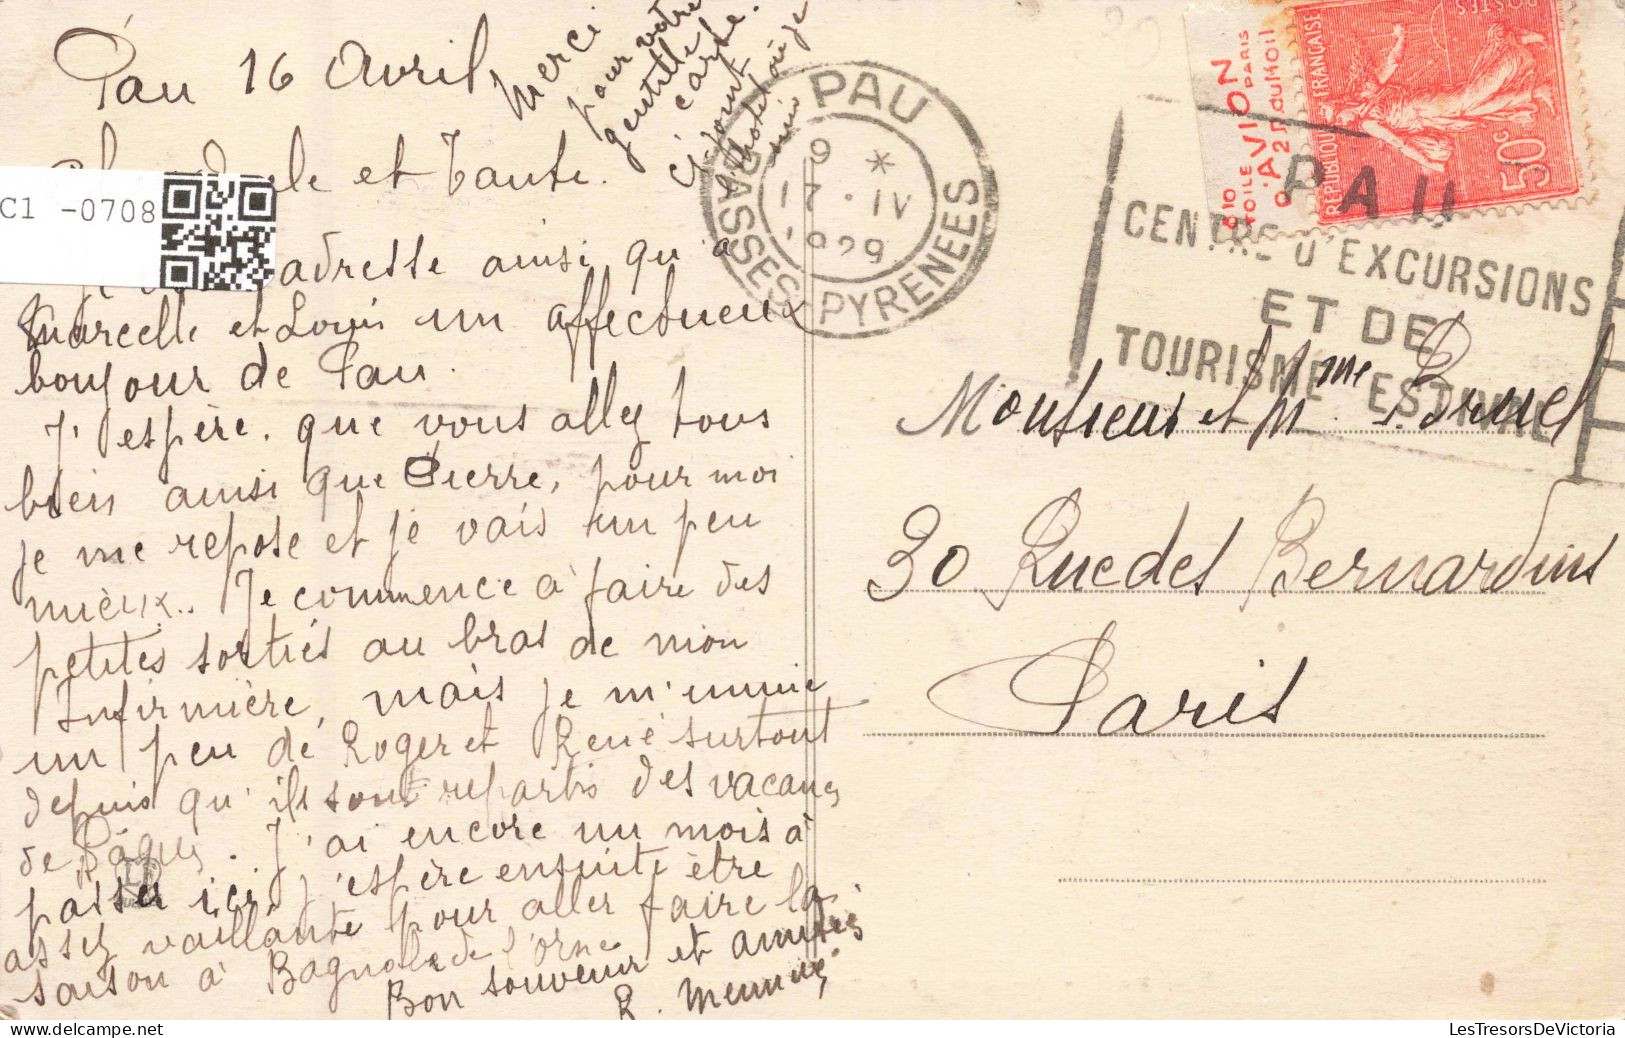 Pau 16 Avril
Merci
pour votre
gentille
carte.
ci-joint
et Tante.
C1 -0708
adresse ainsi qu'à
Marcelle et Louis un affectueux
bonjour de Pau.
J'espère que vous allez tous
bien ainsi que Pierre, pour moi
je me repose et je vais un peu
mieux.. Je commence à faire des
petites sorties au bras de mon
Infirmière, mais je m'ennuie
un peu de Roger et René surtout
depuis qu'ils sont repartis des vacances
de Pâques. J'ai encore un mois à
passer ici j'espère ensuite être
assez vaillante pour aller faire la
saison à Bagnole de l'orne
Bon souvenir et amitiés
PAU
9 *
17 · IV
1929
BASSES PYRENEES
610
TOILE D'AVION
PARIS
REPUBLIQUE FRANÇAISE
POSTES
50c
PAU
CENTRE D'EXCURSIONS
ET DE
TOURISME ESTIVAL
Monsieur et Mme
30 Rue des Bernardins
Paris
LesTresorsDeVictoria.com